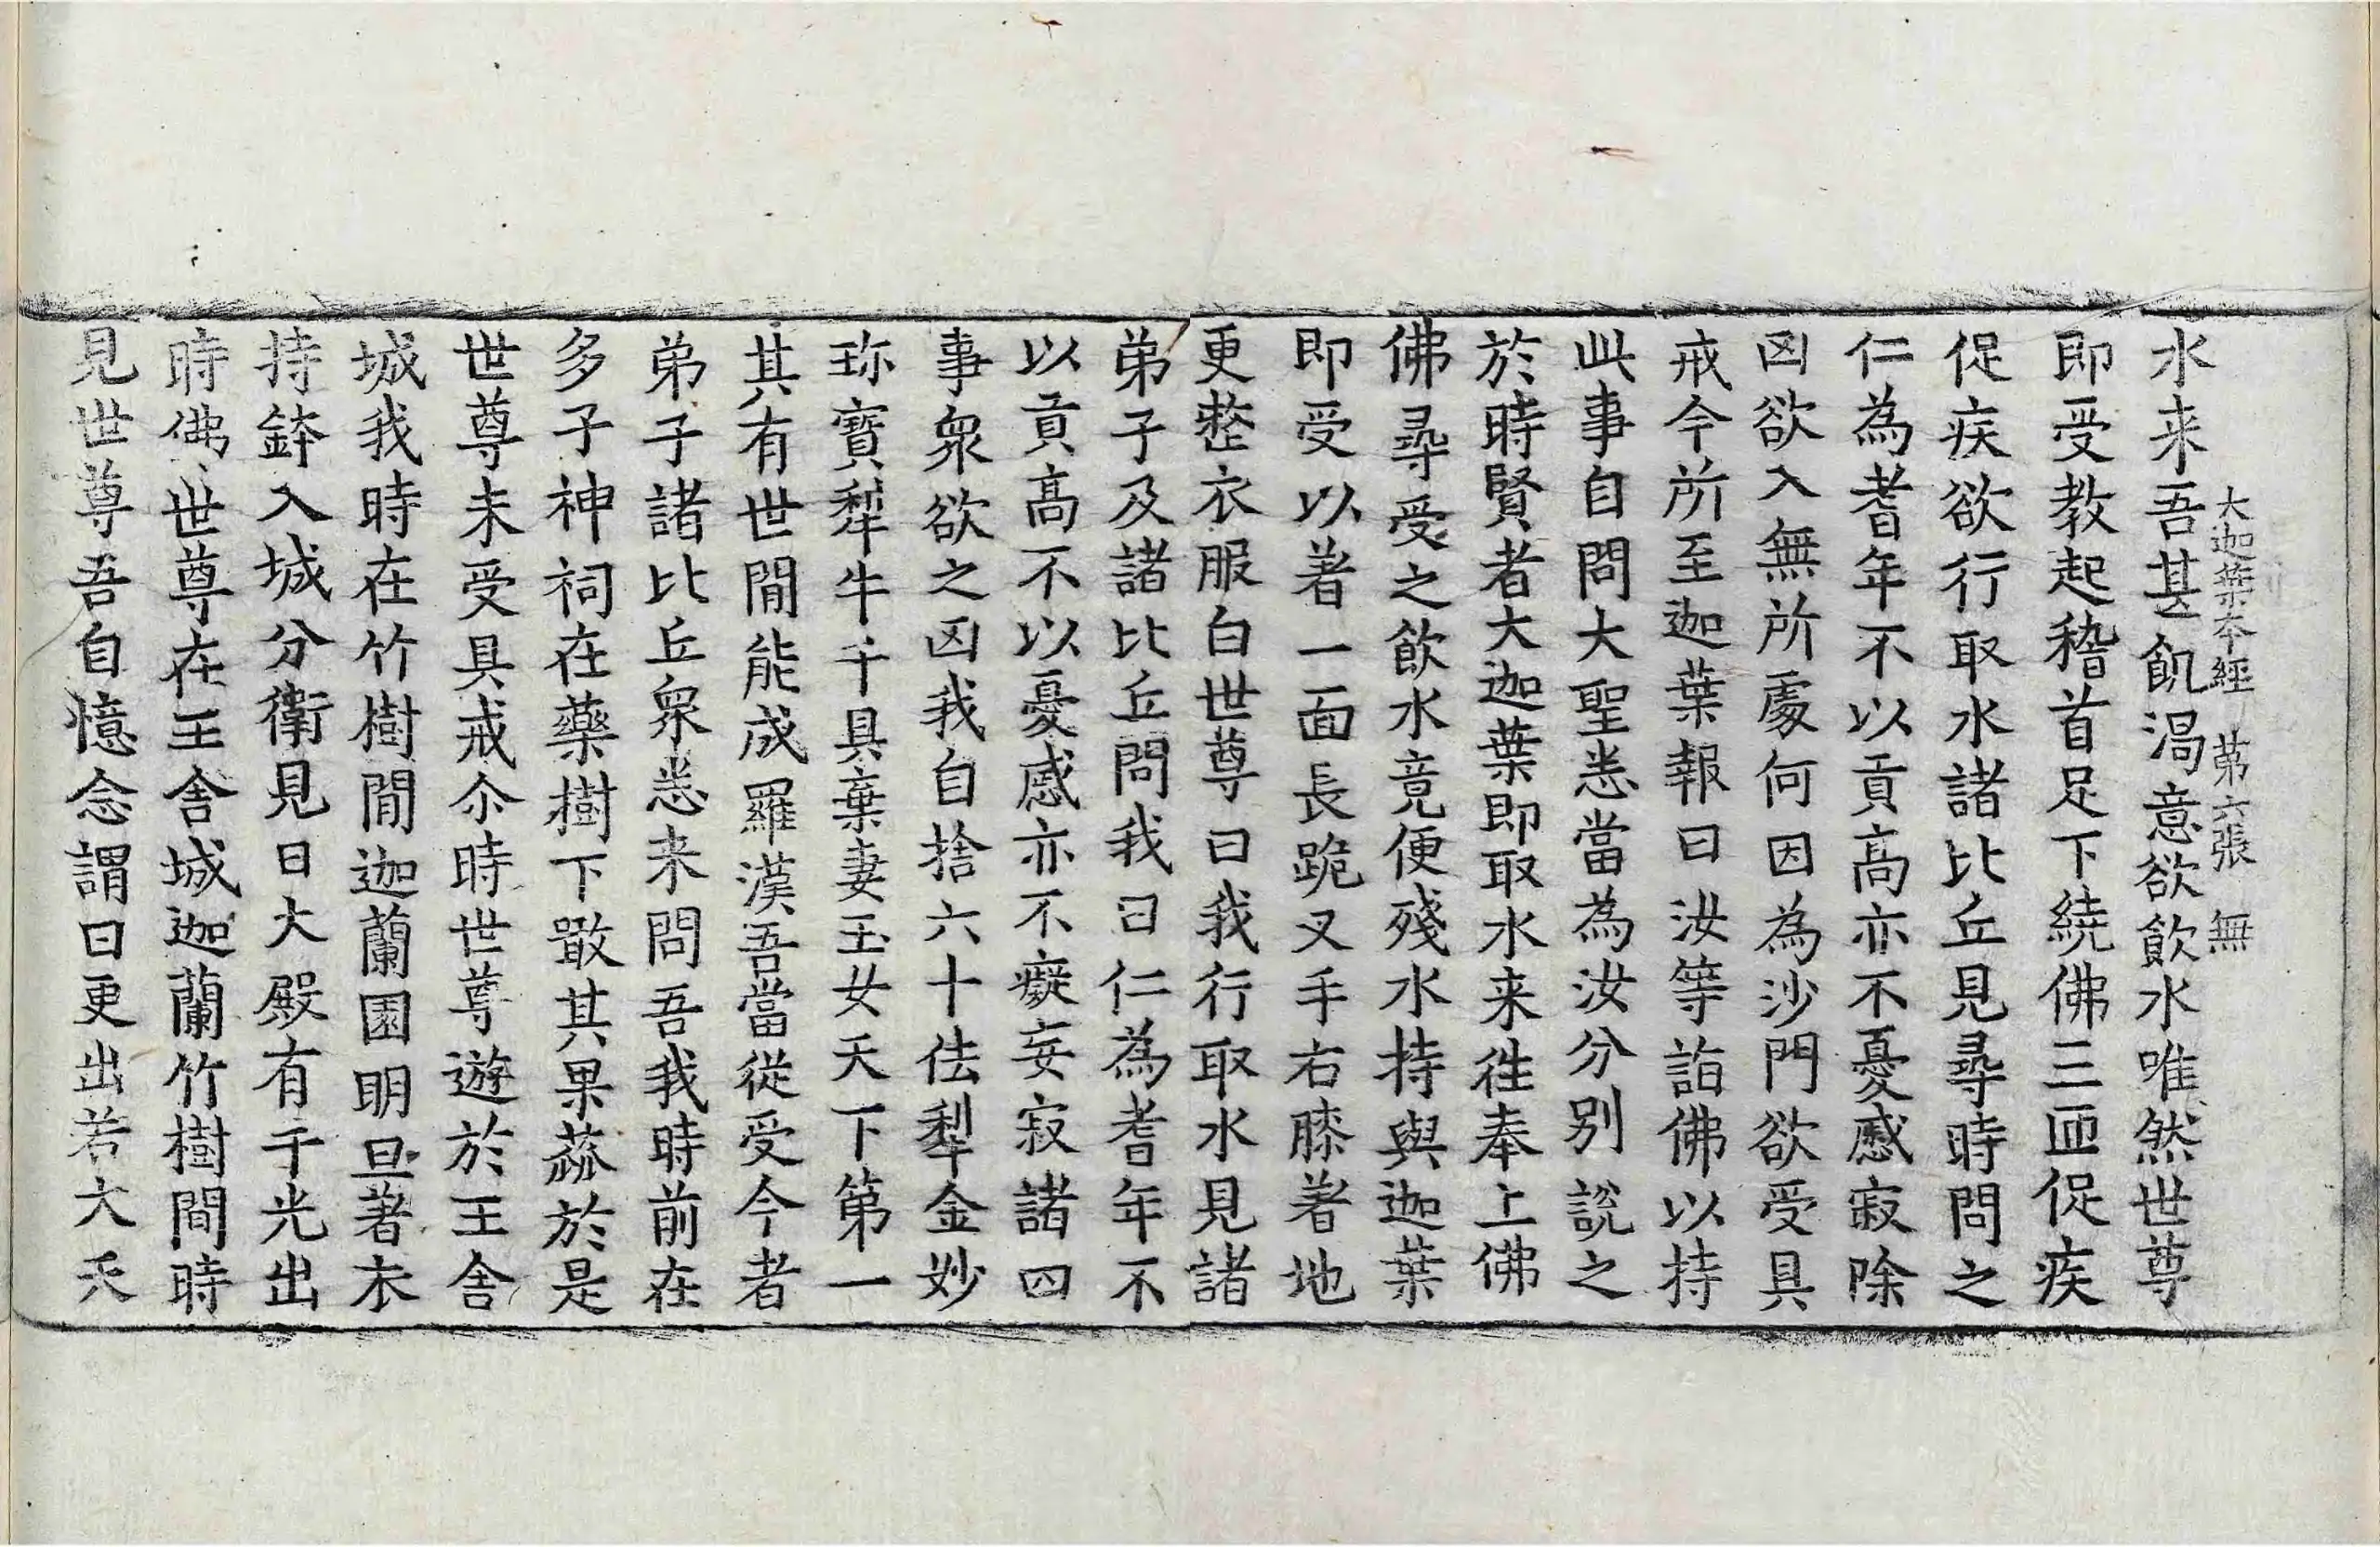 大迦葉本經 第六張 無
水来吾甚飢渴意欲飲水唯然世尊
即受教起稽首足下繞佛三匝促疾
促疾欲行取水諸比丘見尋時問之
仁為耆年不以貢高亦不憂慼寂除
凶欲入無所處何因為沙門欲受具
戒今所至迦葉報曰汝等詣佛以持
此事自問大聖悉當為汝分別說之
於時賢者大迦葉即取水来往奉上佛
佛尋受之飲水竟便殘水持與迦葉
即受以著一面長跪叉手右膝著地
更整衣服白世尊曰我行取水見諸
弟子及諸比丘問我曰仁為耆年不
以貢高不以憂慼亦不癡妄寂諸四
事衆欲之凶我自捨六十佉犁金妙
珎寶犁牛千具棄妻玉女天下第一
其有世閒能成羅漢吾當從受今者
弟子諸比丘衆悉来問吾我時前在
多子神祠在藥樹下噉其果蓏於是
世尊未受具戒尒時世尊遊於王舍
城我時在竹樹閒迦蘭園明旦著衣
持鉢入城分衛見日大殿有千光出
時佛世尊在王舍城迦蘭竹樹間時
見世尊吾自憶念謂曰更出若大天